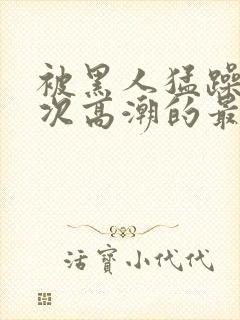 被黑人猛躁
次高潮的最
活寶小代代